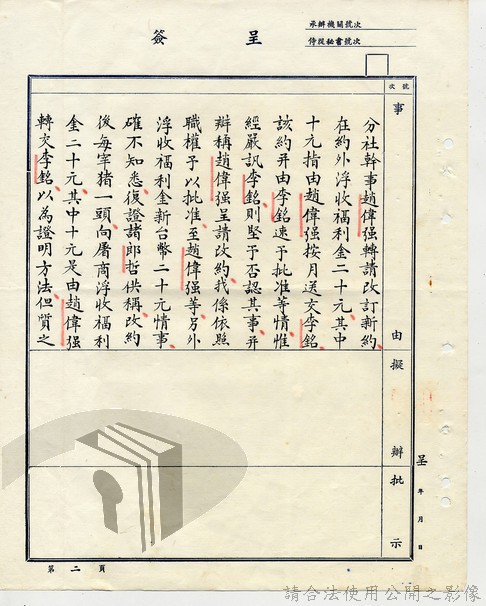 簽呈
承辦機關號次
侍從秘書號次
號次
事由
擬辦
批示
呈 年 月 日
分社幹事趙偉强轉請改訂新約
在約外浮收福利金二十元其中
十元指由趙偉强按月送交李銘
該約并由李銘速予批准等情惟
經嚴訊李銘則堅予否認其事并
辯稱趙偉强呈請改約我係依照
職權予以批准至趙偉强等另外
浮收福利金新台幣二十元情事
確不知悉復證諸郎哲供稱改約
後每宰猪一頭向屠商浮收福利
金二十元其中十元是由趙偉强
轉交李銘以為證明方法但質之
第二頁
請合法使用公開之影像